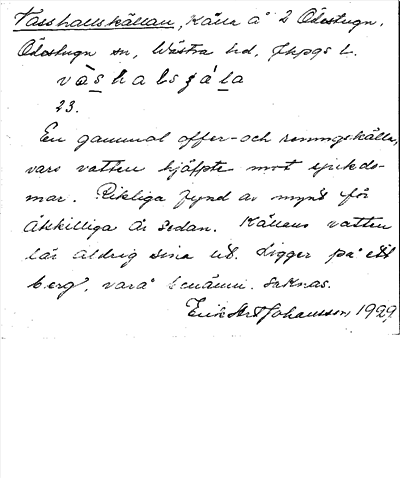 Vasshallskällan, källa å 2 Ödestugn,
Ödestugu sn, Västra hd, Jkpgs l.
vàshalsȥála
23.
En gammal offer- och reningskälla,
vars vatten hjälpte mot sjukdo-
mar. Rikliga fynd av mynt för
åtskilliga år sedan. Källans vatten
lär aldrig sina ut. Ligger på ett
berg, varå benämn. saknas.
Erik Art Johansson, 1929.